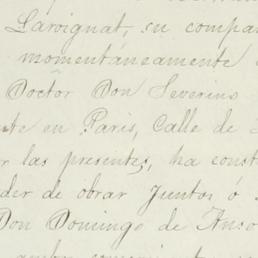 Lavignat, su compa
momentáneamente
Doctor Don Severino
te en Paris, Calle de
r las presentes, ha const
der de obrar Juntos ó
Don Domingo de Anso